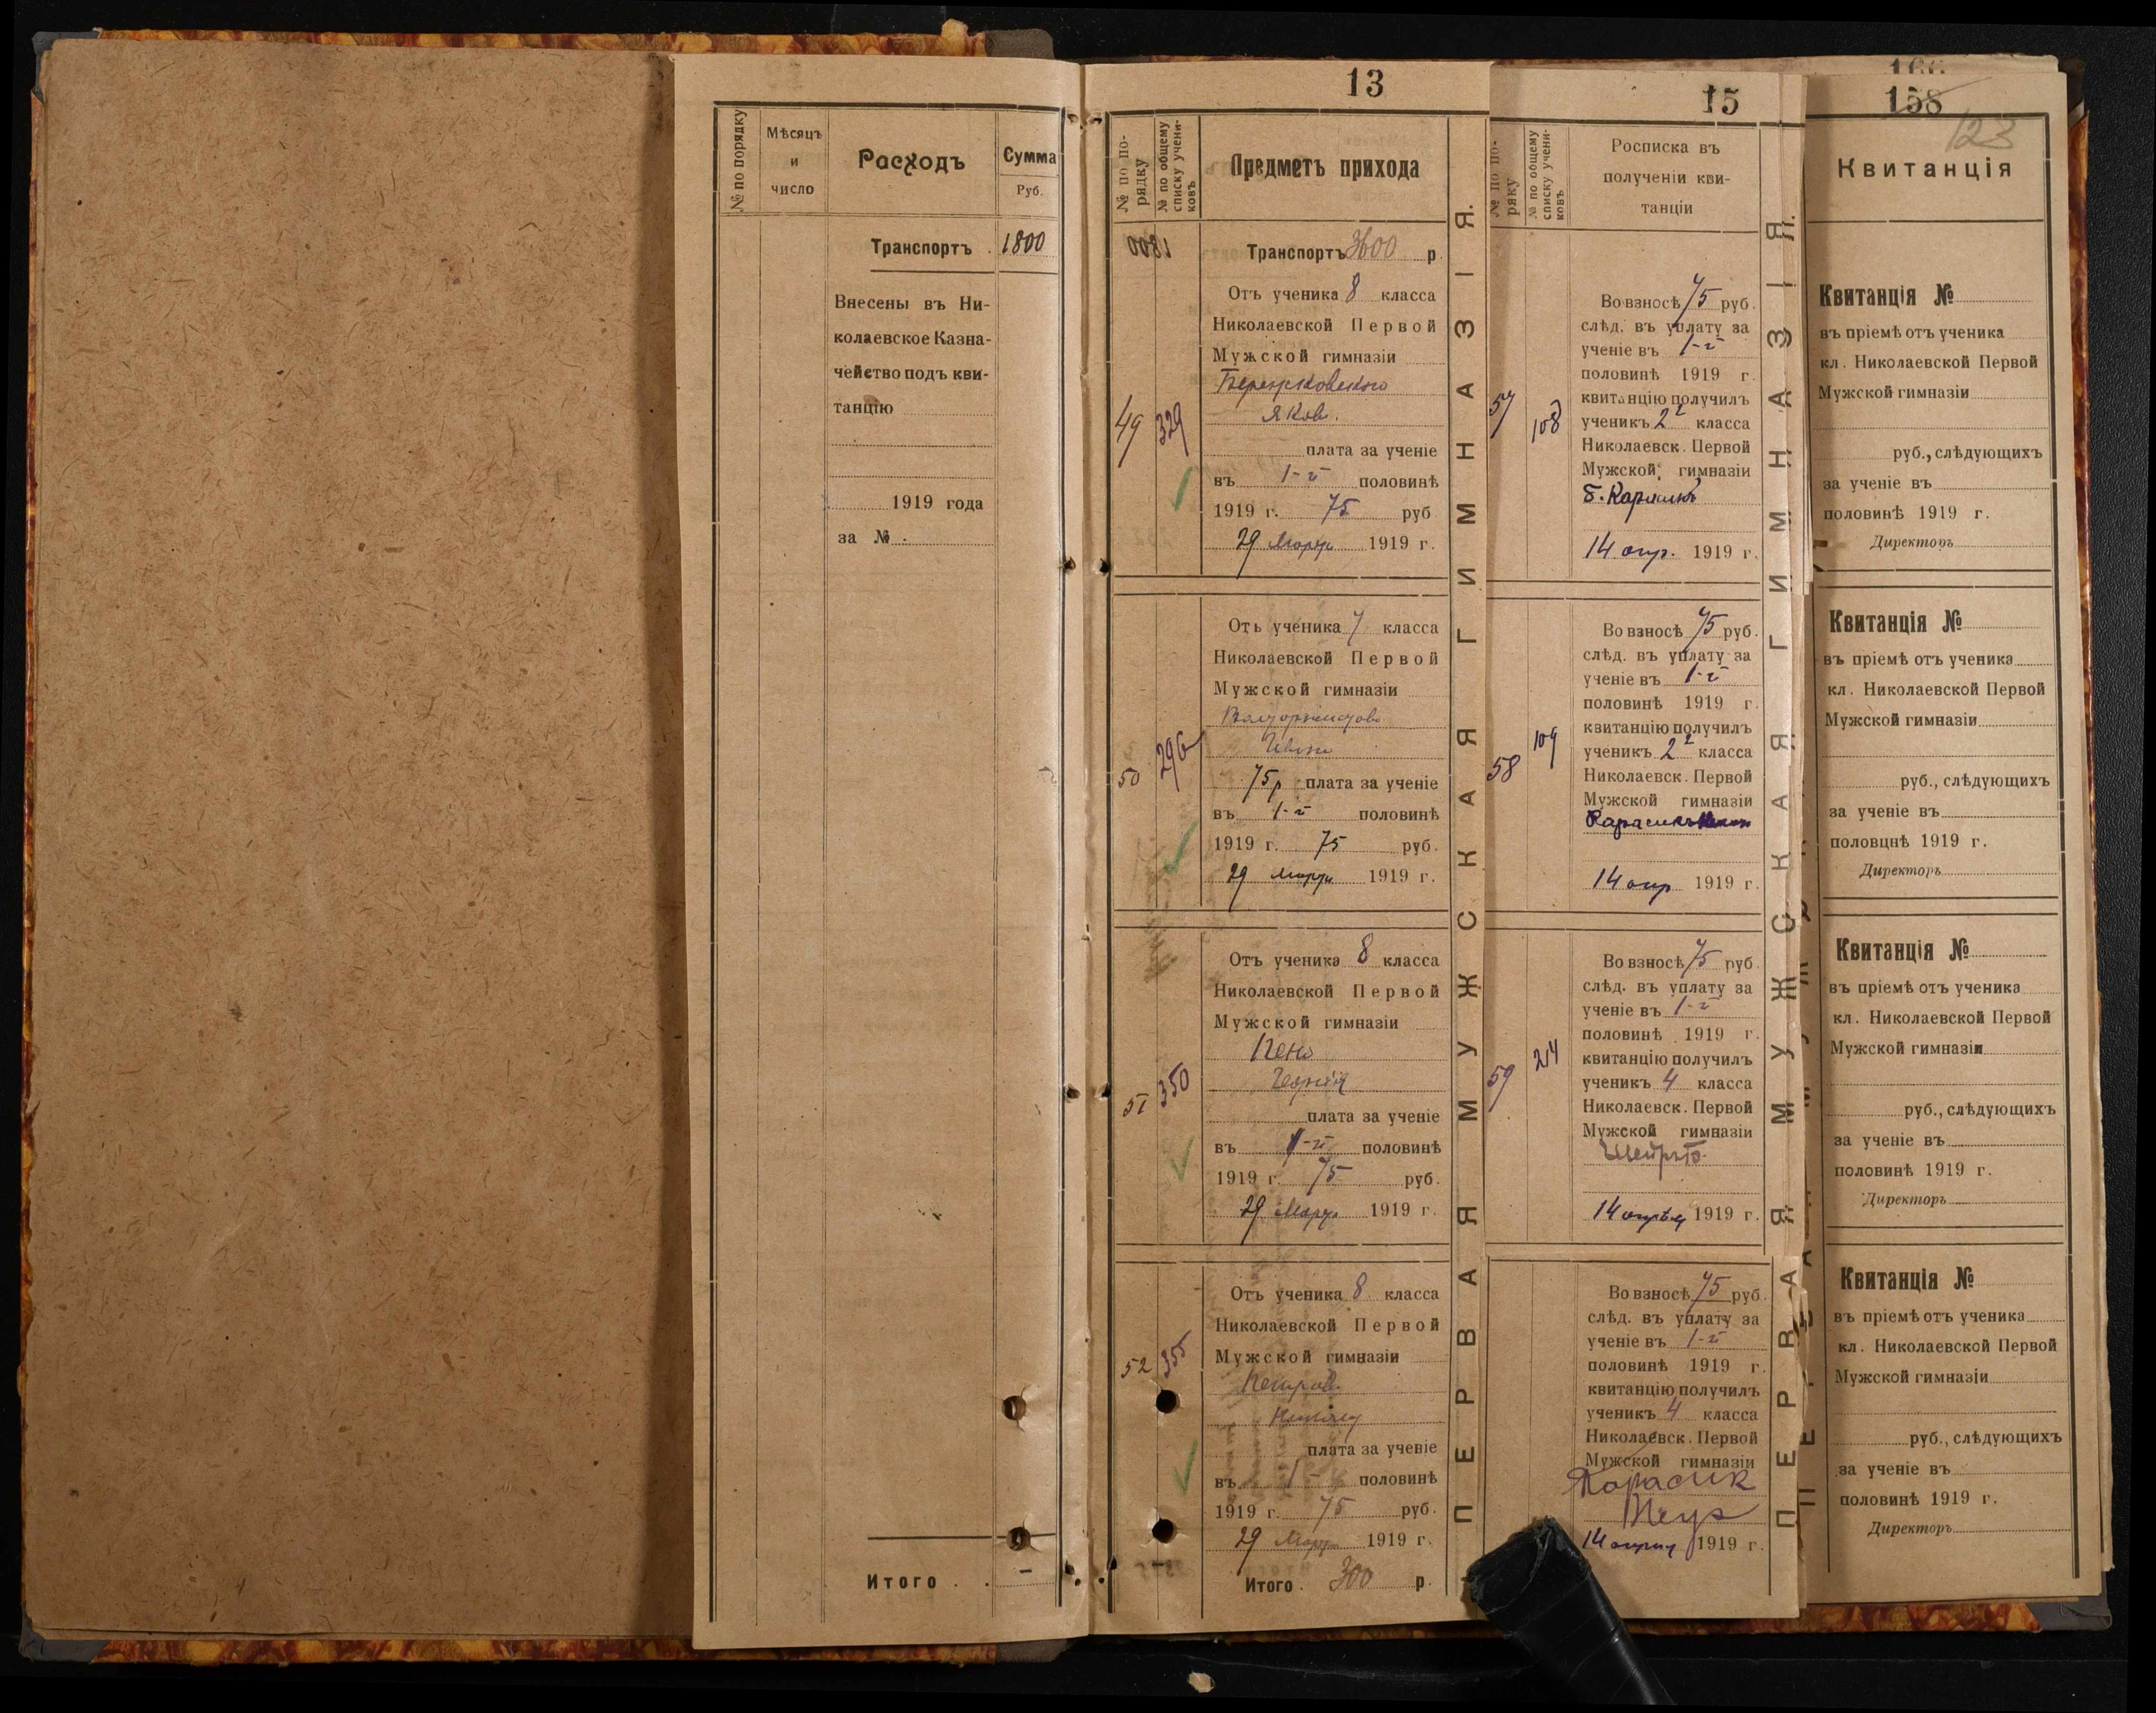 № по порядку
Мѣсяцъ
и
число
Расходъ
Сумма
Руб.
Транспортъ . 1800
Внесены въ Ни-
колаевское Казна-
чейство подъ кви-
танцію
1919 года
за №
Итого . . –
13
№ по по-
рядку
№ по общему
списку учени-
ковъ
Предметъ прихода
Транспортъ 3600 р.
49
329
Отъ ученика 8 класса
Николаевской Первой
Мужской гимназіи
Яков.
плата за ученіе
въ 1-й половинѣ
1919 г. 75 руб
29 Марта 1919 г.
50
296
Отъ ученика 7 класса
Николаевской Первой
Мужской гимназіи
75р плата за ученіе
въ 1-й половинѣ
1919 г. 75 руб.
29 Марта 1919 г.
51
350
Отъ ученика 8 класса
Николаевской Первой
Мужской гимназіи
Георгія
плата за ученіе
въ 1-й половинѣ
1919 г. 75 руб.
29 Марта 1919 г.
52
355
Отъ ученика 8 класса
Николаевской Первой
Мужской гимназіи
плата за ученіе
въ 1- половинѣ
1919 г. 75 руб.
29 Марта 1919 г.
Итого . 300 р.
ПЕРВАЯ МУЖСКАЯ ГИМНАЗІЯ.
15
№ по по-
ряку
№ по общему
списку учени-
ковъ
Росписка въ
полученіи кви-
танціи
57
108
Во взносѣ 75 руб.
слѣд. въ уплату за
ученіе въ 1-й
половинѣ 1919 г.
квитанцію получилъ
ученикъ 2² класса
Николаевск. Первой
Мужской гимназіи
Б. Карасикъ
14 апр. 1919 г.
58
109
Во взносѣ 75 руб.
слѣд. въ уплату за
ученіе въ 1-й
половинѣ 1919 г.
квитанцію получилъ
ученикъ 2² класса
Николаевск. Первой
Мужской гимназіи
Карасикъ
14 апр 1919 г.
59
214
Во взносѣ 75 руб
слѣд. въ уплату за
ученіе въ 1-й
половинѣ 1919 г.
квитанцію получилъ
ученикъ 4 класса
Николаевск. Первой
Мужской гимназіи
14 апрѣля 1919 г.
Во взносѣ 75 руб.
слѣд. въ уплату за
ученіе въ 1-й
половинѣ 1919 г.
квитанцію получилъ
ученикъ 4 класса
Николаевск. Первой
Мужской гимназіи
Карасик
14 апрѣл 1919 г.
ПЕРВАЯ МУЖСКАЯ ГИМНАЗІЯ.
166
158
123
Квитанція
Квитанція №
въ пріемѣ отъ ученика
кл. Николаевской Первой
Мужской гимназіи
руб., слѣдующихъ
за ученіе въ
половинѣ 1919 г.
Директоръ
Квитанція №
въ пріемѣ отъ ученика
кл. Николаевской Первой
Мужской гимназіи
руб., слѣдующихъ
за ученіе въ
половцнѣ 1919 г.
Директоръ
Квитанція №
въ пріемѣ отъ ученика
кл. Николаевской Первой
Мужской гимназіи
руб., слѣдующихъ
за ученіе въ
половинѣ 1919 г.
Директоръ
Квитанція №
въ пріемѣ отъ ученика
кл. Николаевской Первой
Мужской гимназіи
руб., слѣдующихъ
за ученіе въ
половинѣ 1919 г.
Директоръ